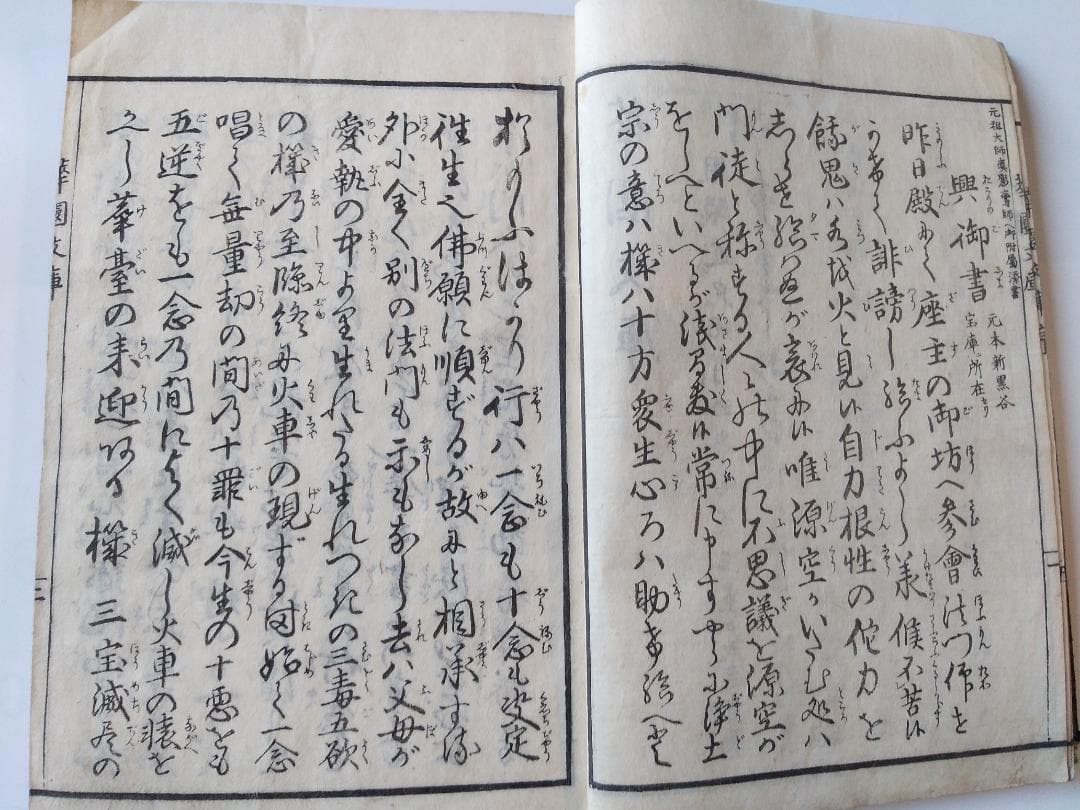 興御書 元本新黒谷
宝庫ニ所在せり
昨日殿にて座主の御坊へ参會法門御を
かきて誹謗し給ふよし承候不苦候
餓鬼ハ水を火と見候自力根性の佗力を
しらせ給はぬが哀に候唯源空がいたむ処ハ
門徒と称する人々の中に不思議を源空が
をしへといへるが浅ましく候常に申すやうに浄土
宗の意ハ機ハ十方衆生心ろハ助け給へと
おもふばかり行ハ一念も十念も决定
往生之佛願に順ずるが故にと相承する
外に全く別の法門も示も なし去ハ父母が
愛執の中より生れたる生れつきの三毒五欲
の機乃至臨終に火車の現ずる時始て一念
唱て無量劫の間乃十罪も今生の十悪も
五逆をも一念乃間によく滅し火車の猿を
てし華臺の来迎ある機 三宝滅尽の
華園文庫